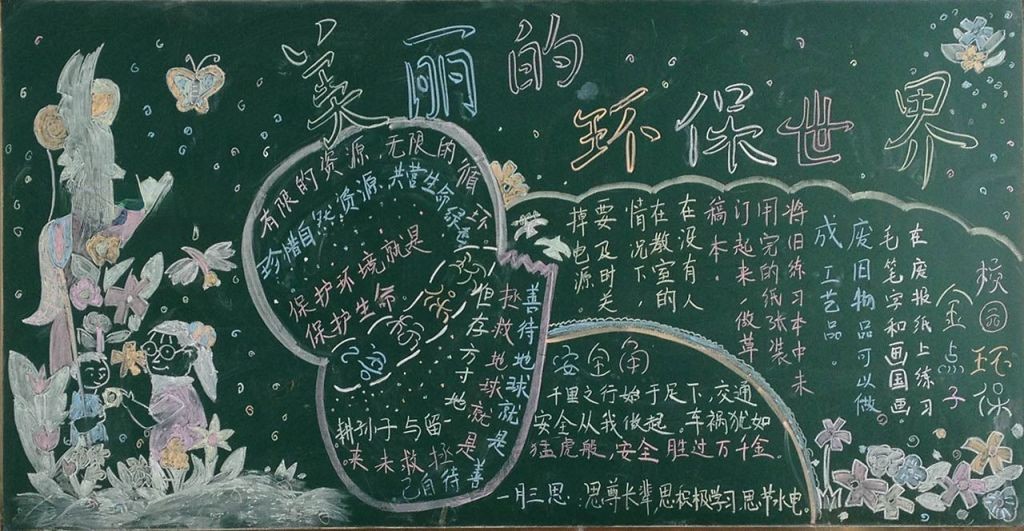 美丽的
环保世界
有限的资源,无限的循环。
珍惜自然资源,共营生命绿色
保护环境就是
保护生命
但存方寸地
耕
子与留
善待地球就是善待自己
拯救地球就是拯救未来。
校园环保
金点子
在废报纸上练习
毛笔字和画国画
废旧物品可以做
成工艺品。
将旧练习本中未
用完的纸张装
订起来,做草
稿本。
在没有人
在教室的
情况下,
要及时关
掉电源。
安全角
千里之行始于足下,交通
安全从我做起。车祸犹如
猛虎般,安全胜过万千金。
一月三思:思尊长辈 思积极学习 思节水电。